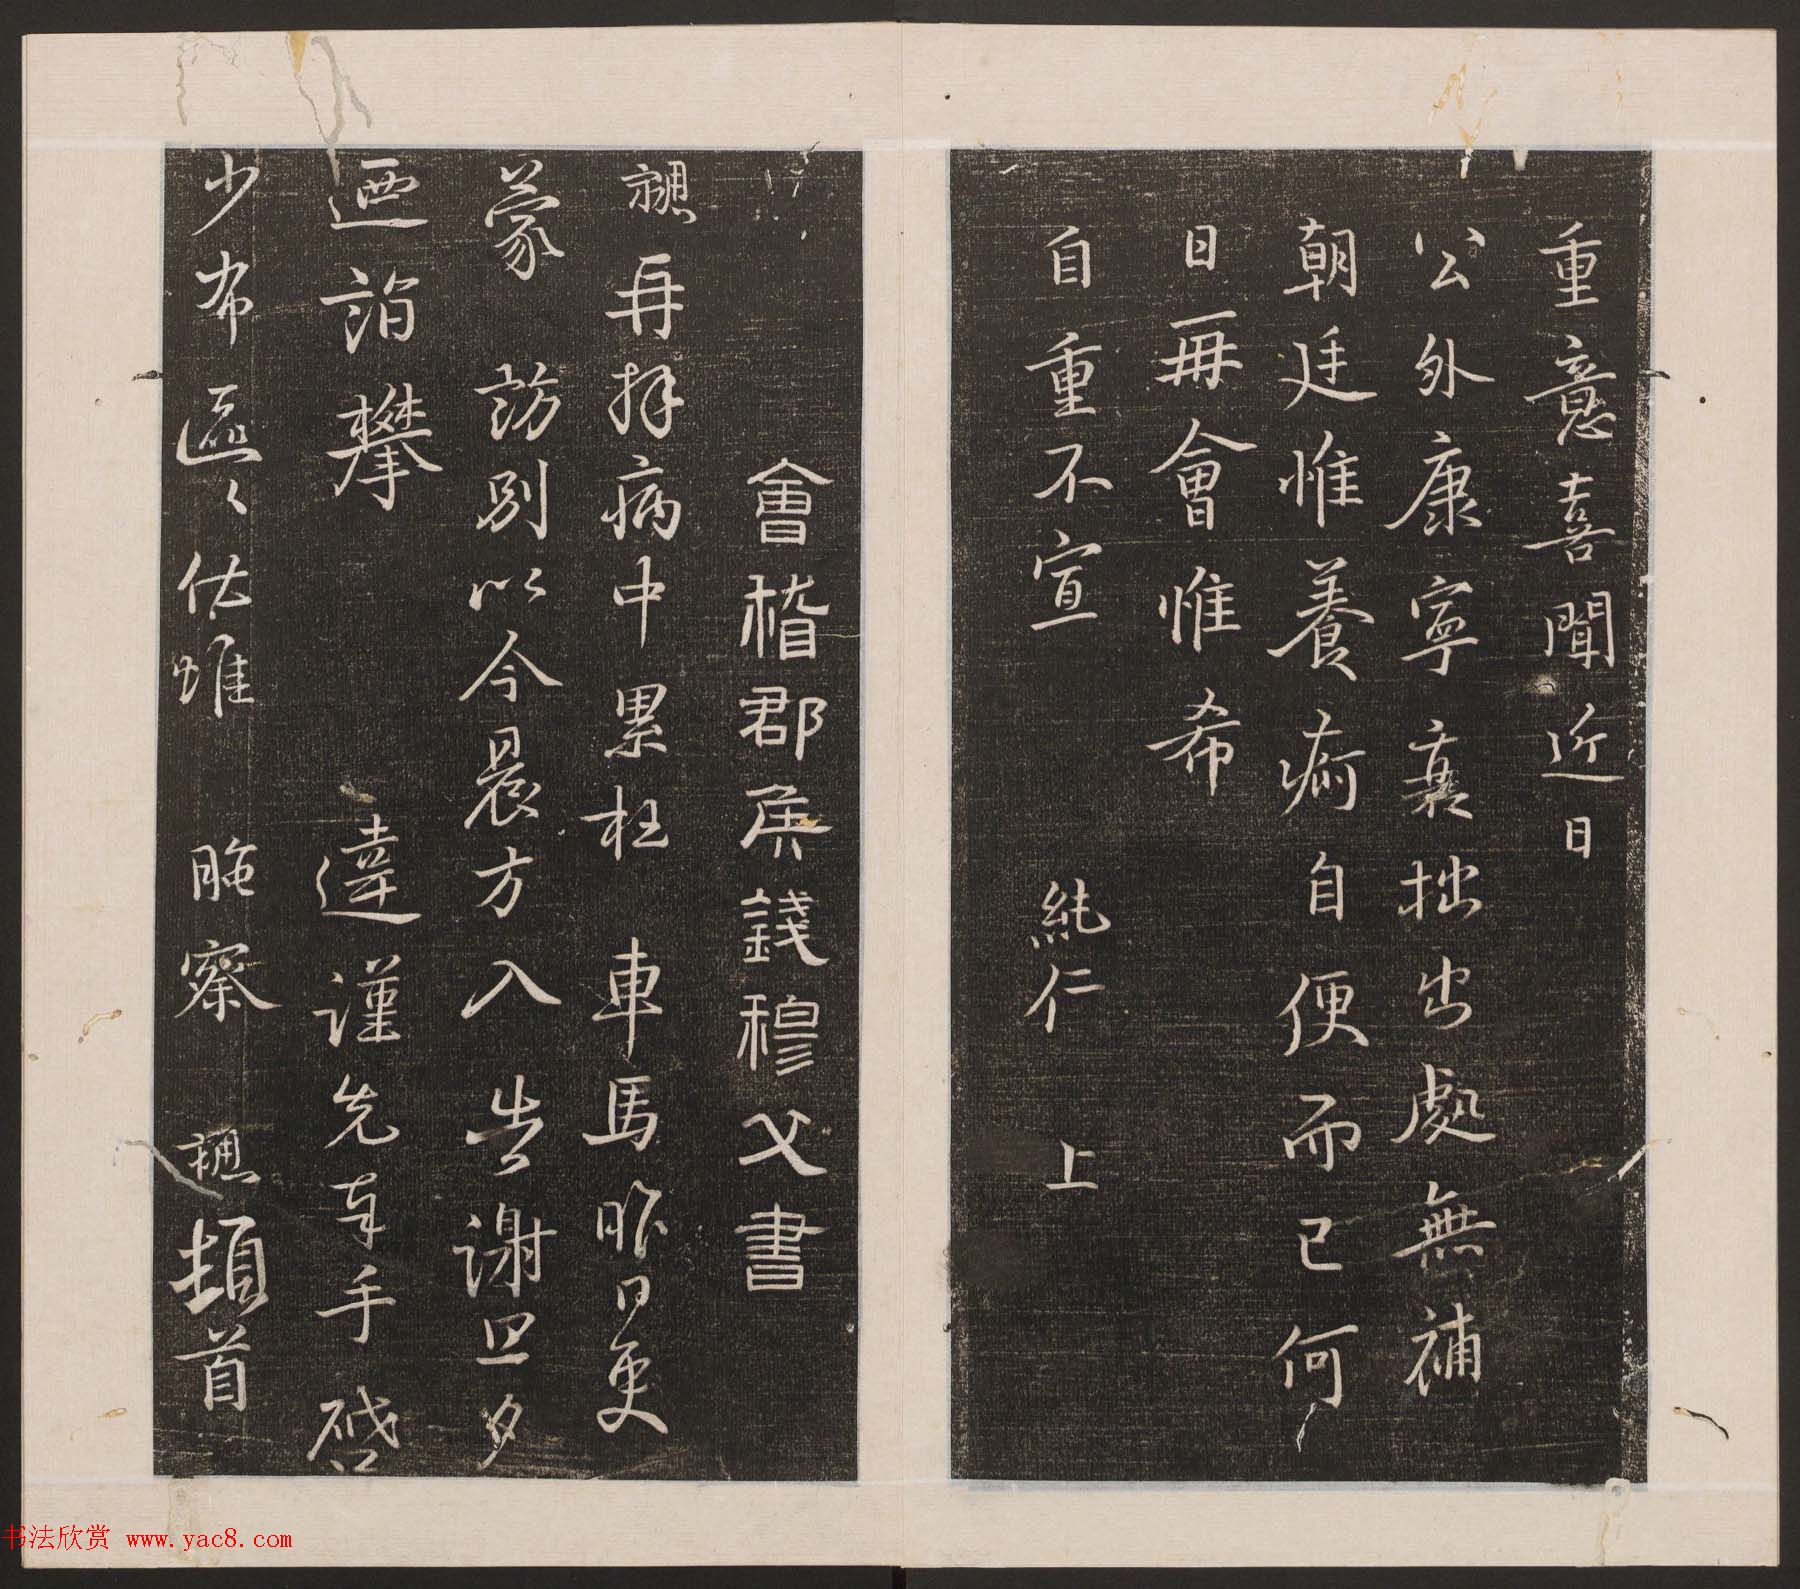 重意喜聞近日
公外康寧衰拙出處無補
朝廷惟養痾自便而已何
日再會惟希
自重不宣 純仁 上
會稽郡矦錢穆父書
勰再拜病中累枉 車馬昨日更
蒙 訪別以今晨方入 告謝旦夕
迺詣攀 違謹先奉手啓
少布區〻佗唯 眳察 勰頓首
书法欣赏 www.yac8.com